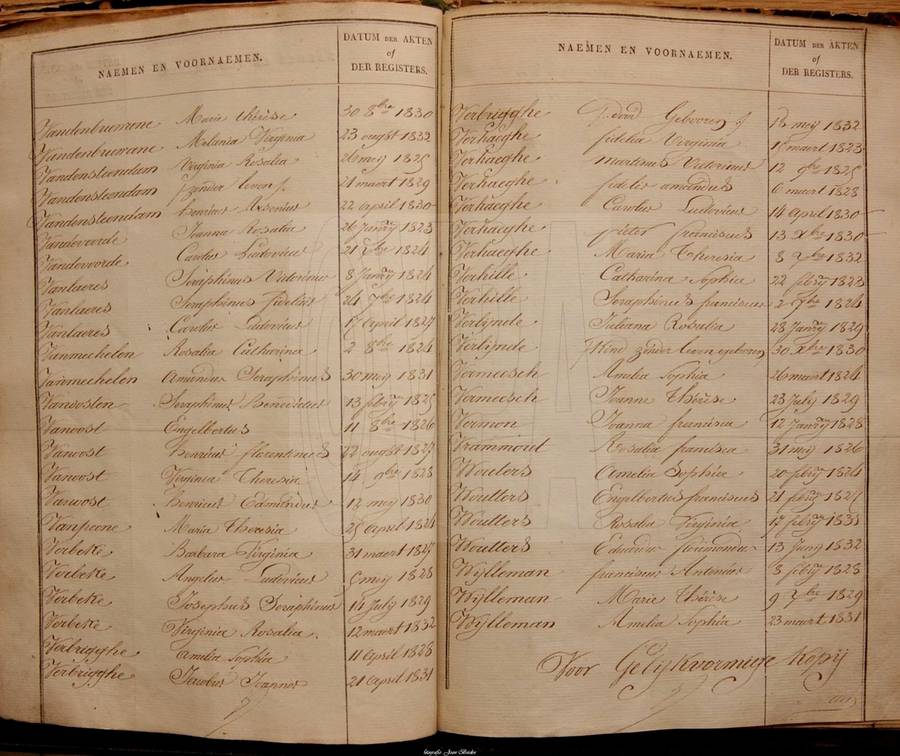 NAEMEN EN VOORNAEMEN. DATUM DER AKTEN of DER REGISTERS.
Vandenbruwane Marie thérèse 30 8bre 1830
Vandenbruwane Melania Virginia 23 ougst 1832
Vandensteendam Virginia Rosalia 26 mey 1825
Vandensteendam leven 21 maart 1829
Vandensteendam henricus 22 april 1830
Vandevoorde Joanna Rosalia 26 January 1823
Vandevoorde Carolus Ludovicus 21 1824
Vanlaeres Seraphinus Victorinus 8 January 1824
Vanlaeres Seraphinus fidelis 24 7bre 1824
Vanlaeres Carolus Ludovicus 17 april 1827
Vanmechelen Rosalia Catharina 2 8bre 1824
Vanmechelen Amandus Seraphinus 30 mey 1831
Vanoosten Seraphinus Benedictus 13 febry 1825
Vanoost Engelbertus 11 8bre 1826
Vanoost henricus florentinus 22 ougst 1827
Vanoost Virginia Theresia 14 9bre 1828
Vanoost Henricus Edmundus 12 mey 1830
Maria Theresia 25 april 1824
Verbeke Barbara Virginia 31 maert 1827
Verbeke Angelus Ludovicus mey 1828
Verbeke Josephus Seraphinus 14 July 1829
Verbeke Virginia Rosalia 12 maart 1832
Verbrigghe Amelia Sophia 11 April 1828
Verbrigghe Jacobus Joannes 21 April 1831
NAEMEN EN VOORNAEMEN. DATUM DER AKTEN of DER REGISTERS.
Verbrigghe dood Geboren mey 1832
Verhaeghe fidelia Virginia maart 1823
Verhaeghe martinus Victorinus 12 9bre 1825
Verhaeghe fidelis amandus 6 maart 1828
Verhaeghe Carolus Ludovicus 14 April 1830
Verhaeghe pieter franciscus 13 Xbre 1830
Verhaeghe Maria Theresia 8 1832
Verhille Catharina Sophia 22 febry 1823
Verhille Seraphinus franciscus 2 1824
Verlynde Juliana Rosalia 28 January 1829
Verlynde Kind zonder leven geboren 30 Xbre 1830
Vermeesch Amelia Sophia 26 maart 1824
Vermeesch Joanne Thérèse 23 July 1829
Vermon Joanna francisca 12 January 1828
Vrammout Rosalia francisca 31 mey 1826
Wouters Amelia Sophia 20 febry 1824
Woutters Engelbertus franciscus 21 febry 1827
Woutters Rosalia Virginia 17 febry 1831
Woutters Eduardus florimondus 13 Juny 1832
Wylleman franciscus Antonius 8 febry 1823
Wylleman Marie Thérèse 9 1829
Wylleman Amelia Sophia 23 maart 1831
Voor Gelijkvormige kopij